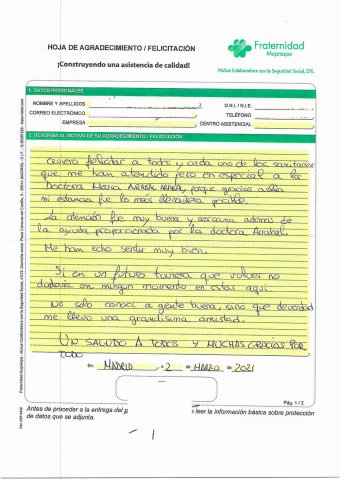 HOJA DE AGRADECIMIENTO / FELICITACIÓN
¡Construyendo una asistencia de calidad!
Fraternidad
Muprespa
Mutua Colaboradora con la Seguridad Social, 275.
1. DATOS PERSONALES
NOMBRE Y APELLIDOS
D.N.I. / N.I.E.
CORREO ELECTRÓNICO
TELÉFONO
EMPRESA
CENTRO ASISTENCIAL
2. DESCRIBA EL MOTIVO DE SU AGRADECIMIENTO / FELICITACIÓN
Quiero felicitar a todos y cada uno de los sanitarios
que me han atendido pero en especial a la
Doctora Maria, porque gracias a ella
mi estancia fue lo más llevadera posible.
La atención fue muy buena y cercana además de
la ayuda proporcionada por la doctora Arrabal.
Me han echo sentir muy bien.
Si en un futuro tuviera que volver no
dudaria en ningun momento en estar aquí.
No solo conocí a gente buena, sino que de verdad
me llevo una grandísima amistad.
UN SALUDO A TODOS Y MUCHAS GRACIAS POR
TODO
En MADRID, a 2 de MARZO de 2021
Pág. 1 / 2
Antes de proceder a la entrega del p
leer la información básica sobre protección
de datos que se adjunta.